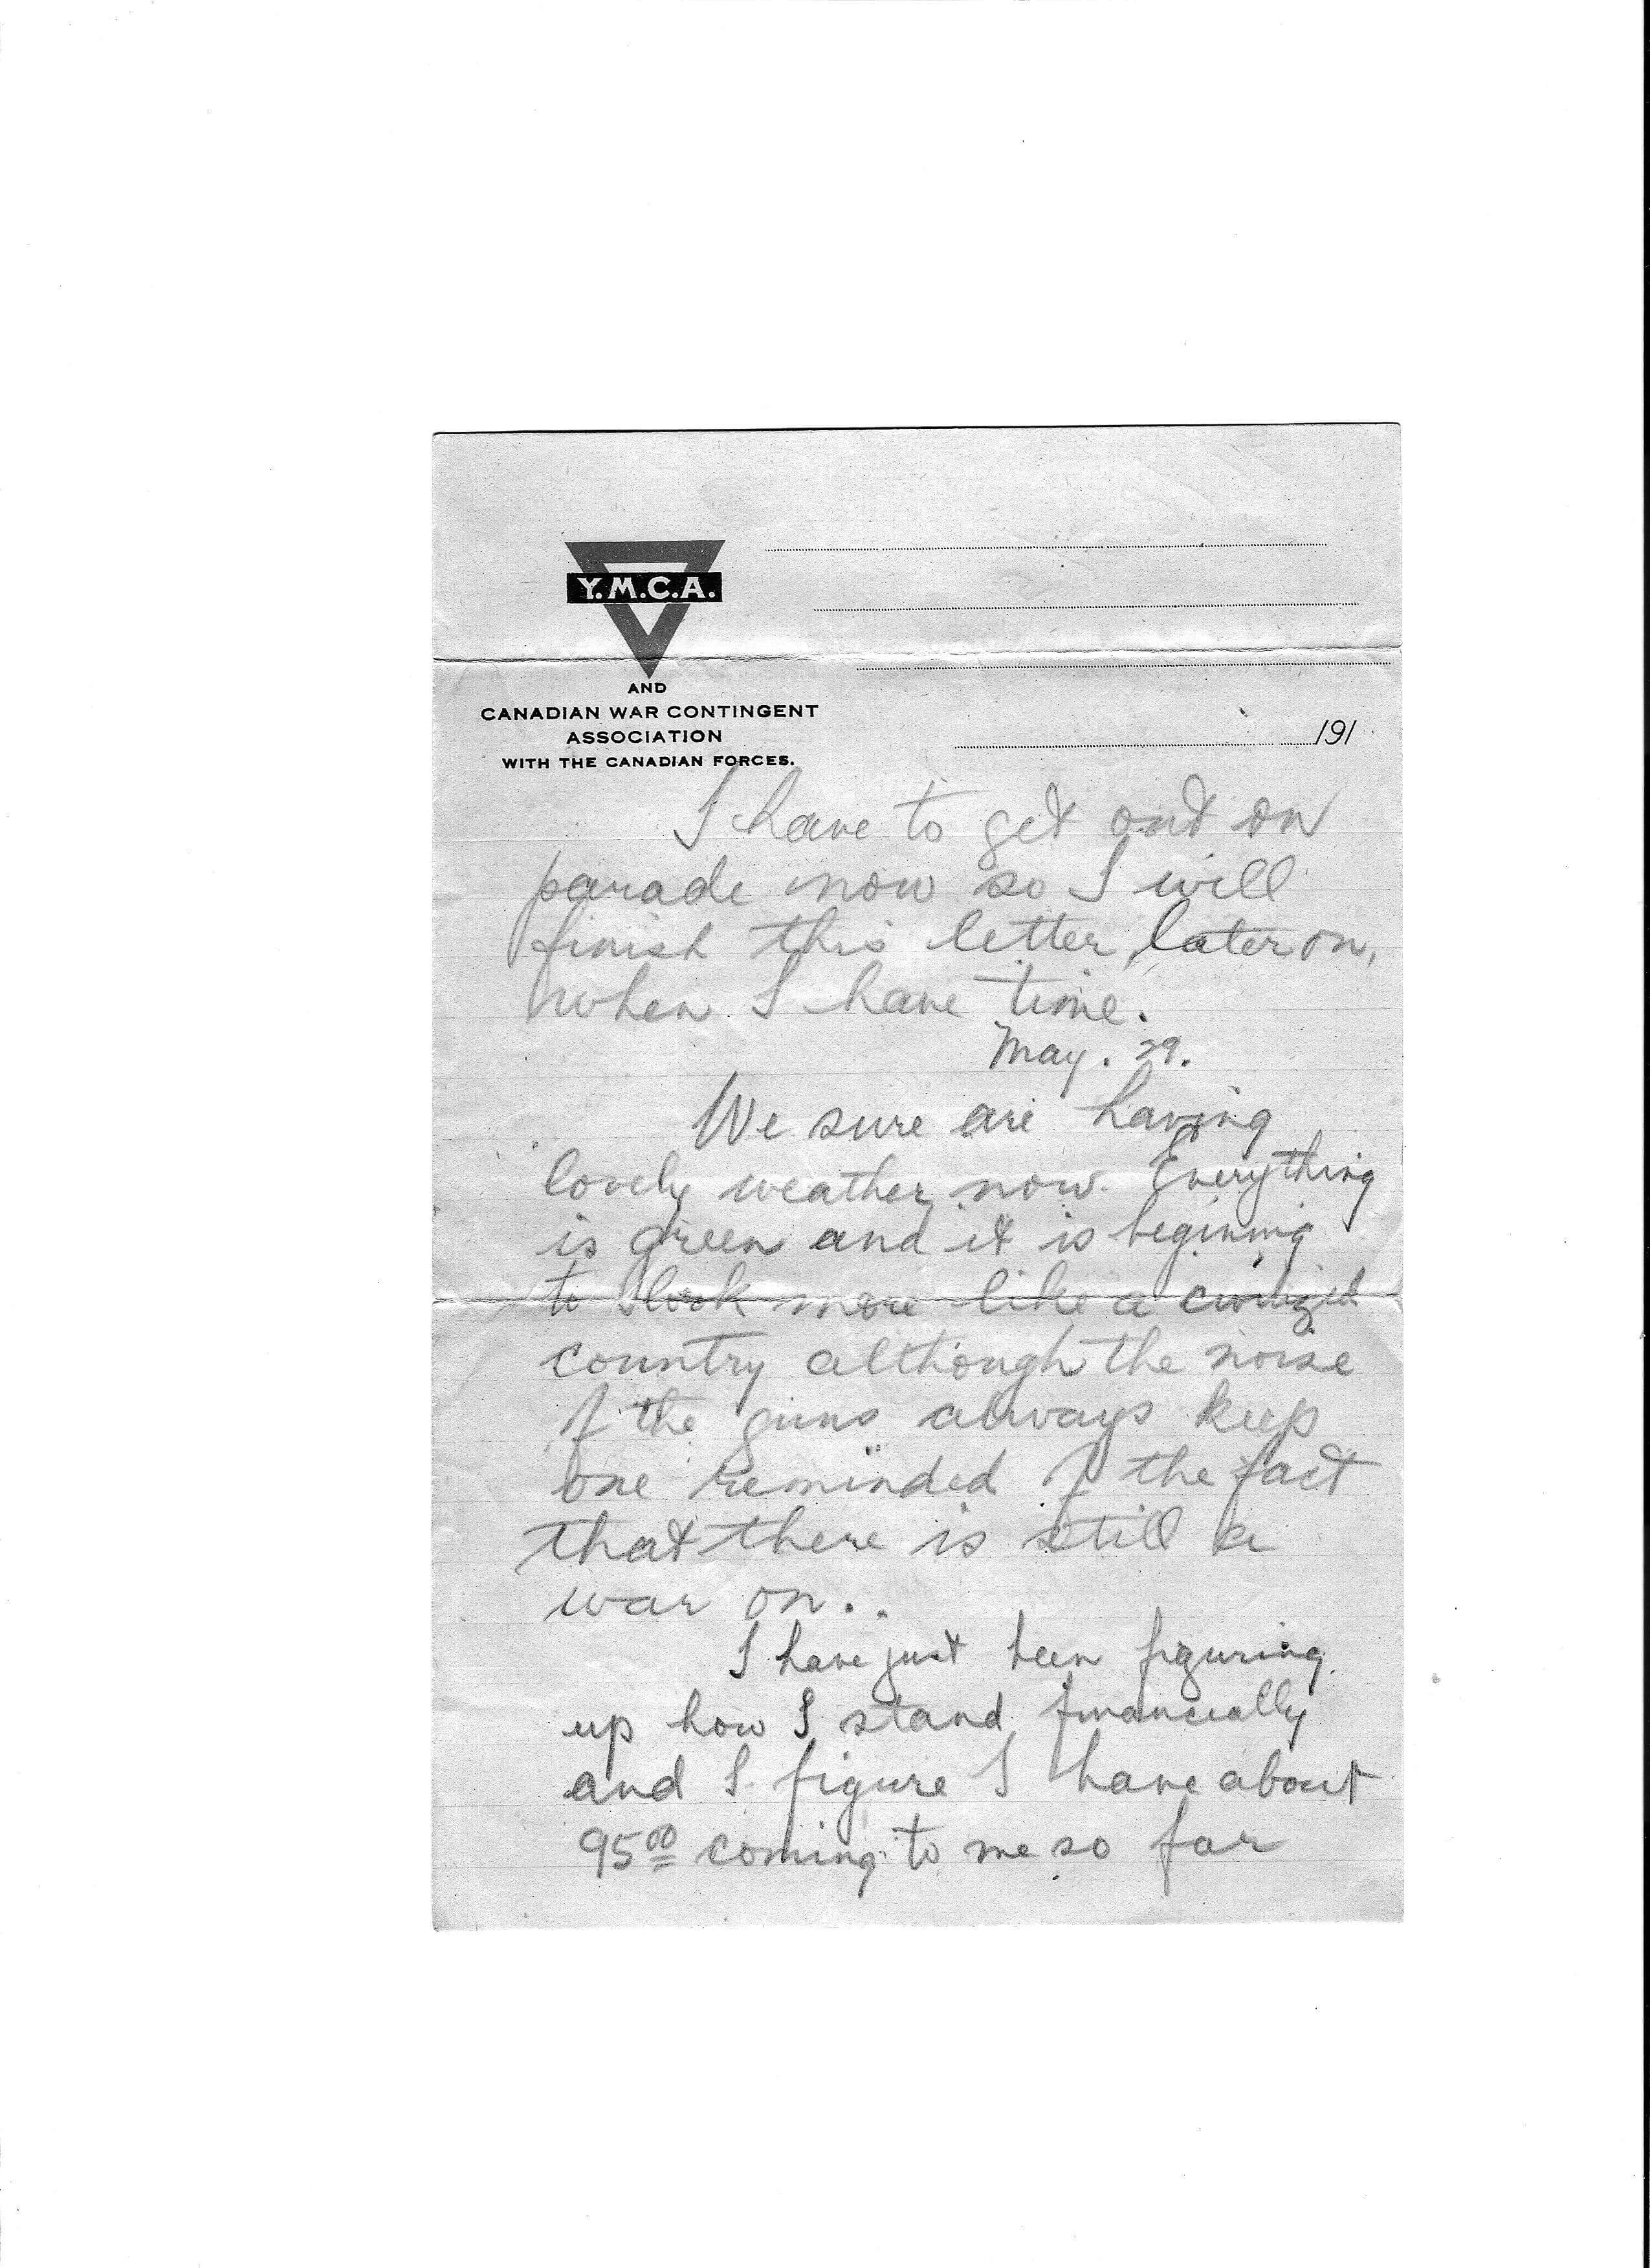 Y.M.C.A.
AND
CANADIAN WAR CONTINGENT
ASSOCIATION
WITH THE CANADIAN FORCES.
191
I have to get out on
parade now so I will
finish this letter later on,
when I have time.
May. 29.
We sure are having
lovely weather now. Everything
is green and it is begining
to look more like a civilized
country although the noise
of the guns always keep
one reminded of the fact
that there is still a
war on..
I have just been figuring
up how I stand financially
and I figure I have about
95.00 coming to me so far